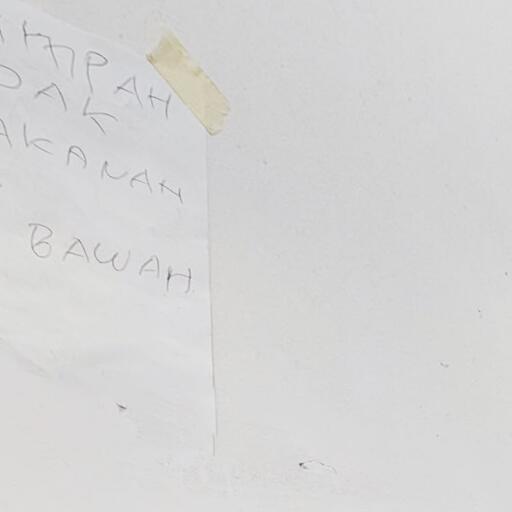 AMPAH
DAK
AKANAN
BAWAH